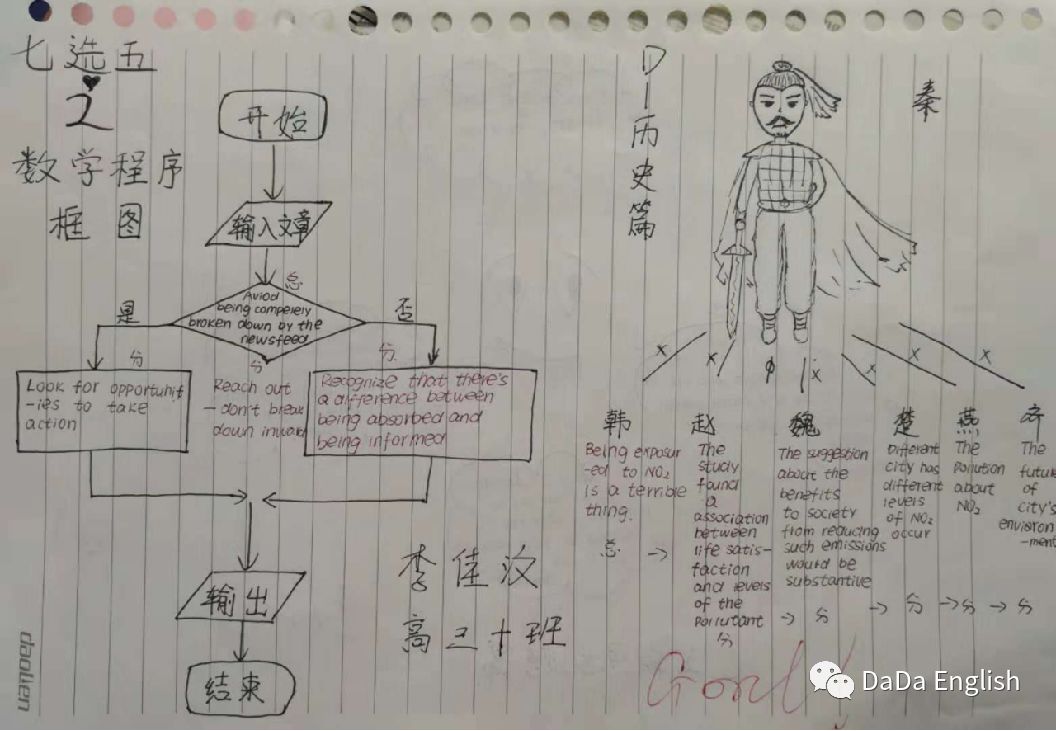 七选五
2
数学程序
框图
开始
输入文章
总
Aviod
being comperely
broken down by the
newsfeed
是
否
分
分
分
Look for opportunit
-ies to take
action
Reach out
-don't break
down inward
Recognize that there's
a difference between
being absorbed and
being informed
输出
结束
李佳汶
高三十班
D
|
历
史
篇
秦
x
x
x
x
x
x
韩
Being exposur
-ed to NO₂
is a terrible
thing.
总
→
赵
The
study
found
a
association
between
life satis-
faction
and levels
of the
pollutant
分
魏
The suggestion
about the
benefits
to society
from reducing
such emissions
would be
substantive
→ 分
楚
Different
city has
different
levels
of NO₂
occur
→ 分
燕
The
Pollution
about
NO₂
→ 分
齐
The
future
of
city's
environ
-ment
→ 分
DaDa English
daolien